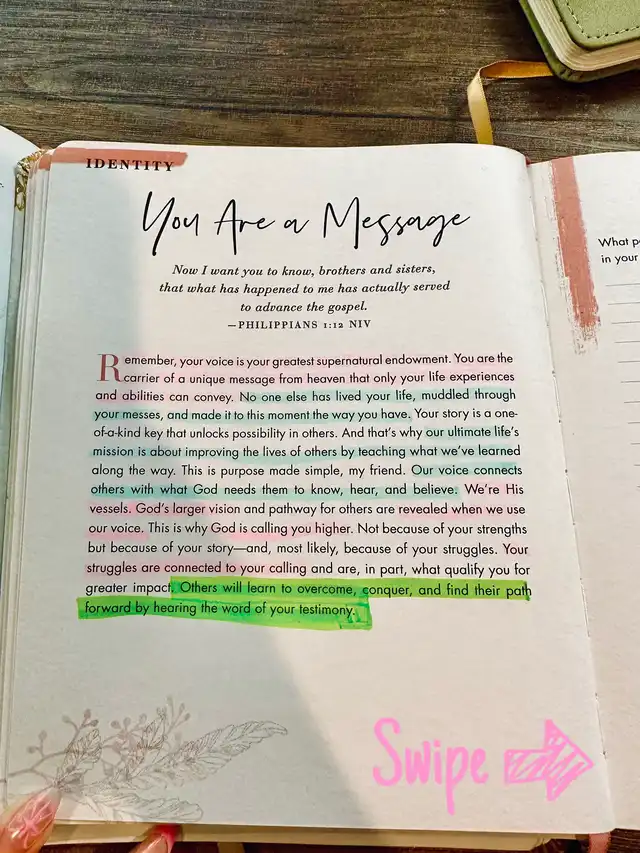 IDENTITY
You Are a Message
Now I want you to know, brothers and sisters,
that what has happened to me has actually served
to advance the gospel.
—PHILIPPIANS 1:12 NIV
Remember, your voice is your greatest supernatural endowment. You are the
carrier of a unique message from heaven that only your life experiences
and abilities can convey. No one else has lived your life, muddled through
your messes, and made it to this moment the way you have. Your story is a one-
of-a-kind key that unlocks possibility in others. And that's why our ultimate life's
mission is about improving the lives of others by teaching what we've learned
along the way. This is purpose made simple, my friend. Our voice connects
others with what God needs them to know, hear, and believe. We're His
vessels. God's larger vision and pathway for others are revealed when we use
our voice. This is why God is calling you higher. Not because of your strengths
but because of your story—and, most likely, because of your struggles. Your
struggles are connected to your calling and are, in part, what qualify you for
greater impact. Others will learn to overcome, conquer, and find their path
forward by hearing the word of your testimony.
What p
in your
Swipe